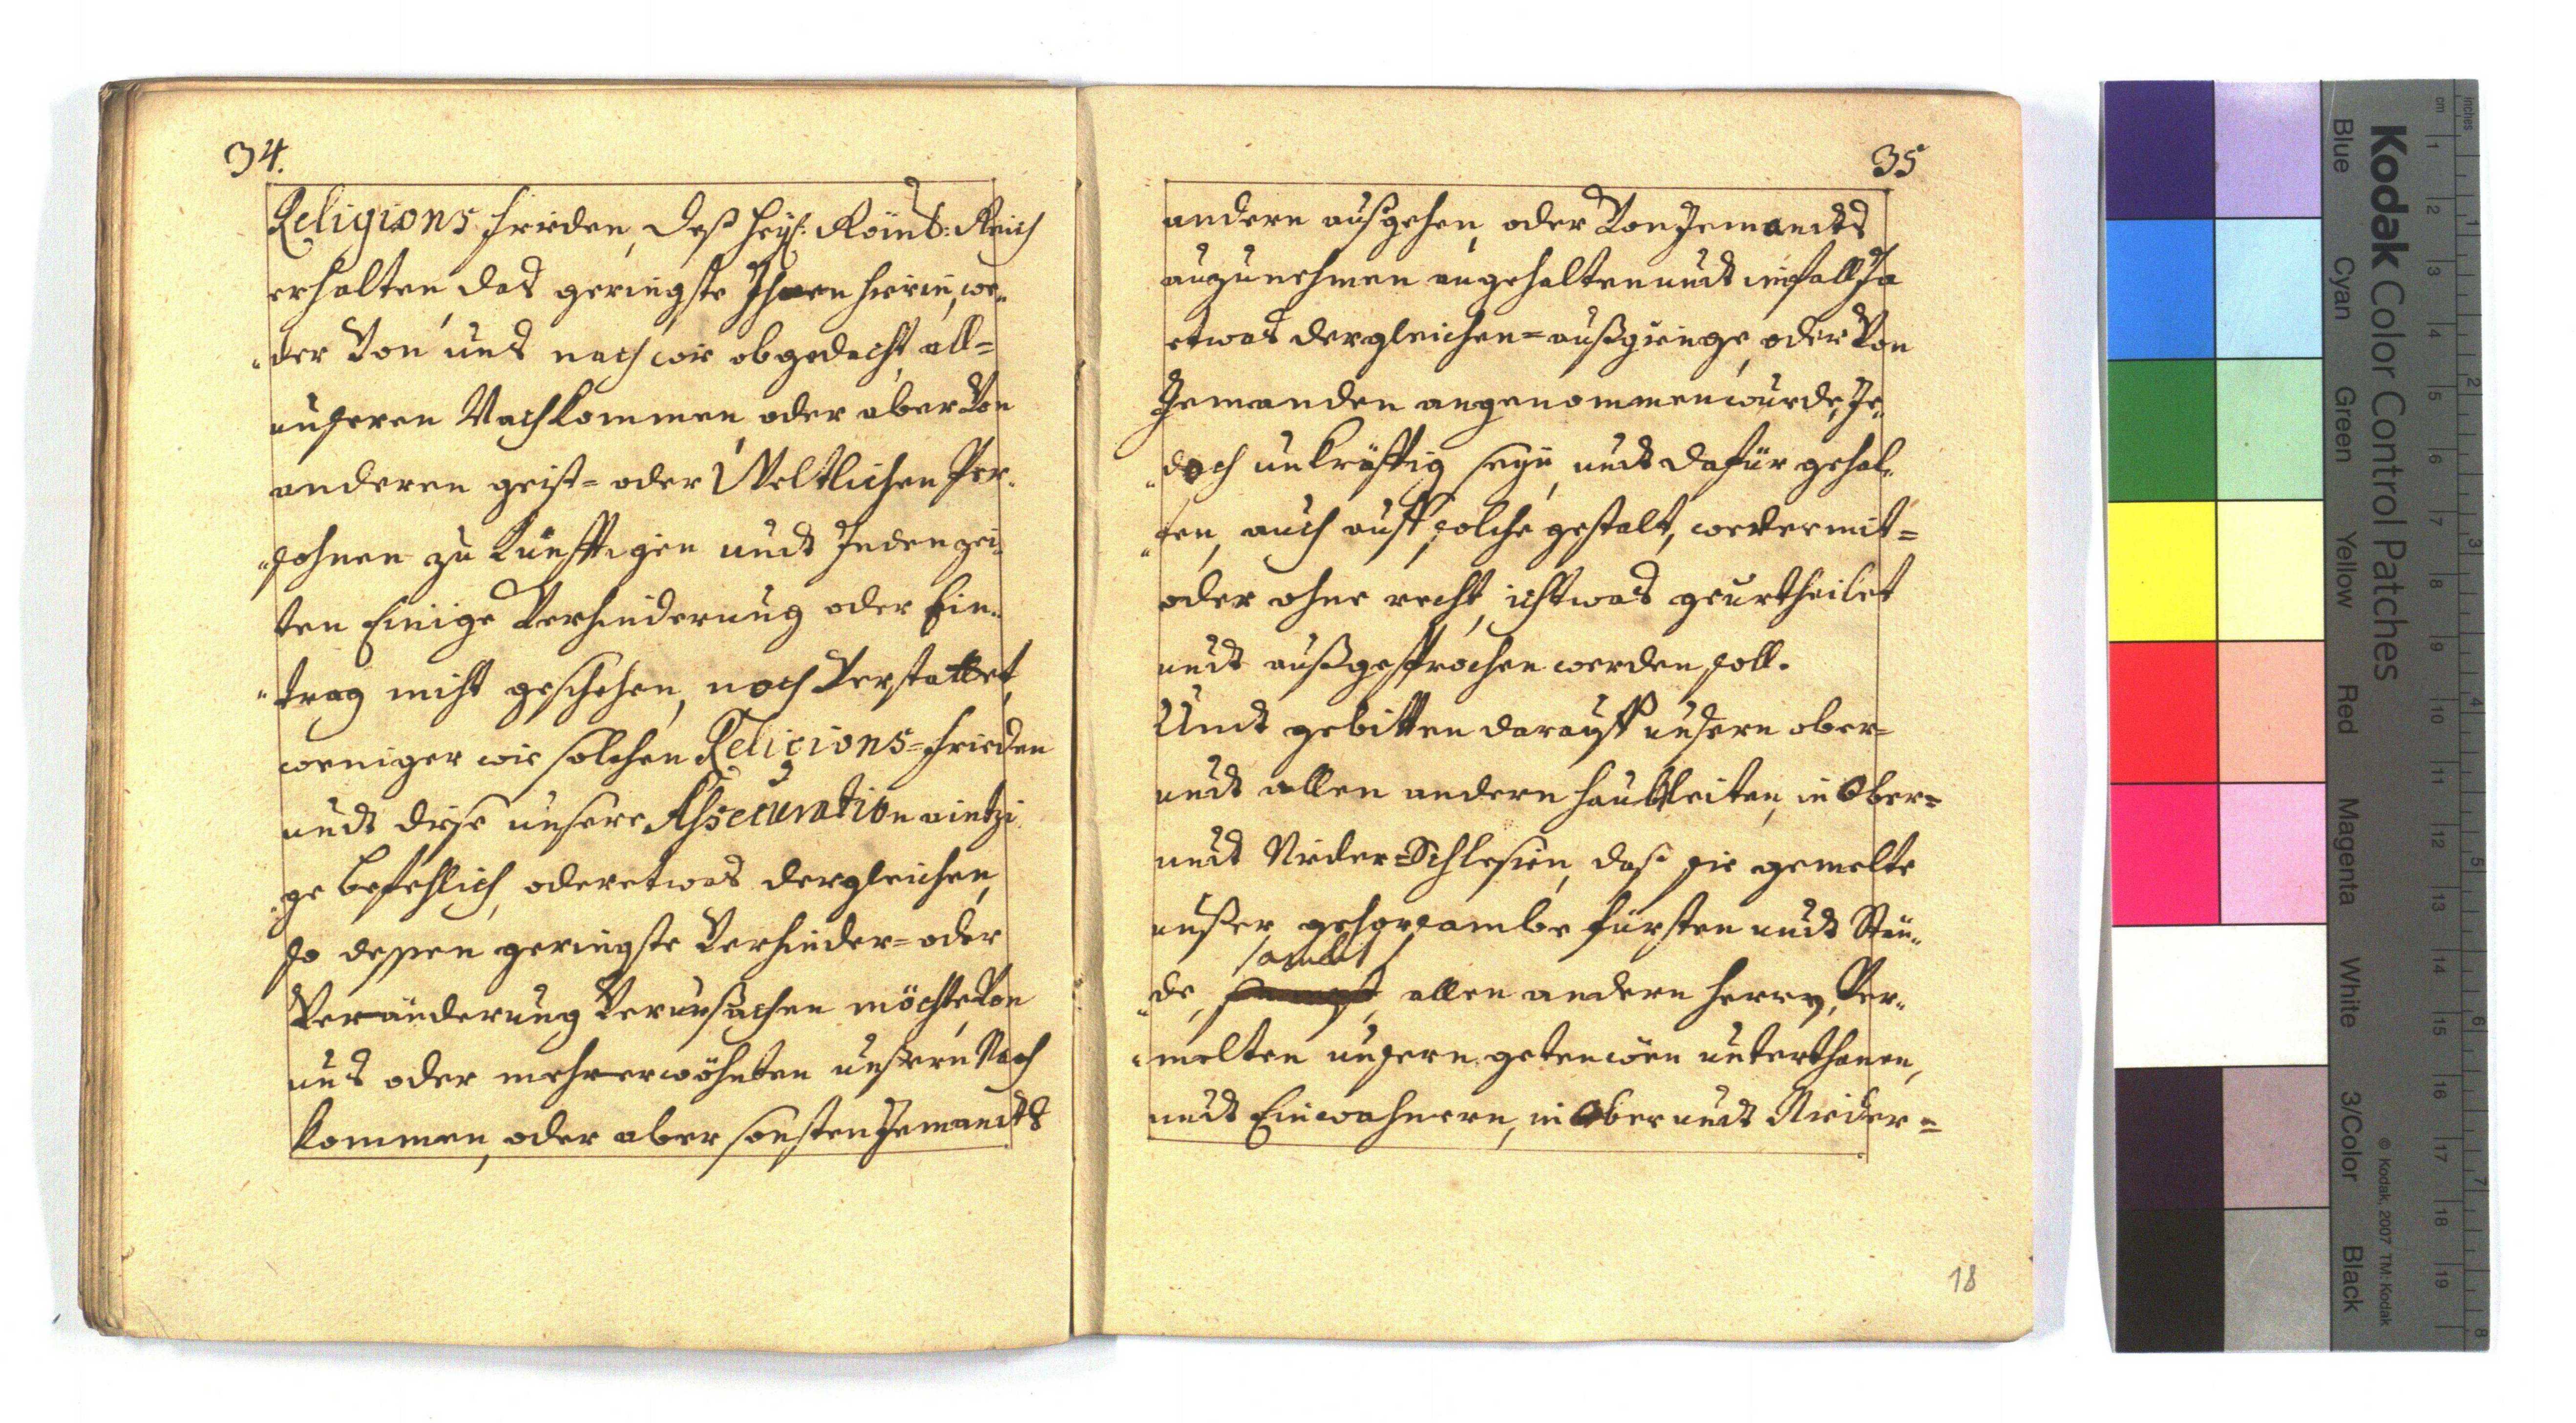 34.
Religions frieden, deß Heyl: Röm: Reich
erhalten, das geringste Ihnen hierin, we„
„der Von unß noch wie obgedacht, all=
unseren Nachkommen oder aber Von
anderen geist= oder Weltlichen Per„
„sohnen zu Künfftigen undt Jeden zei„
ten Einige Verhinderung oder Ein„
„trag nicht geschehen, noch Verstattet,
weniger wie solchen Religions=frieden
undt diese unsere Assecuration eintzi„
„ge befehlich, oder etwas dergleichen,
so dessen geringste Verhinder= oder
Veränderung Verursachen möchte, Von
unß oder mehr erwöhnten unßern Nach
kommen, oder aber sonsten Jemandts
35
andern außgehen, oder Von Jemandts
anzunehmen angehalten undt imfall Ja
etwas dergleichen= außgienge, oder Von
Jemanden angenommen wurde, Je„
„doch unkräfftig seyn, undt dafür gehal„
„ten, auch auff solche gestalt, weder mit=
oder ohne recht, ichtwas geurtheilet
undt außgesprochen werden soll.
Undt gebitten darauff unsern ober=
undt allen andern haubtleiten, in Ober=
undt Nider=Schlesien, daß sie gemelte
unßer gehorsambe fürsten undt Stän„
sambt
„de, allen andern Herrn, Ver„
„melten unsern getrewen unterthanen,
undt Einwahnern, in Ober undt Nieder=
18
Kodak Color Control Patches
Blue Cyan Green Yellow Red Magenta White 3/Color Black
© Kodak, 2007 TM: Kodak
cm 1 2 3 4 5 6 7 8 9 10 11 12 13 14 15 16 17 18 19
Inches 1 2 3 4 5 6 7 8